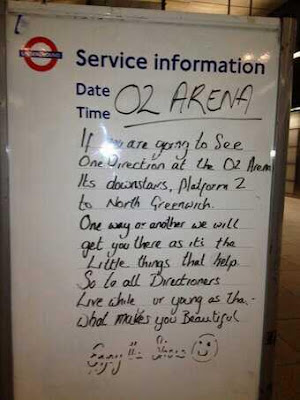 UNDERGROUND
Service information
Date
Time
O2 ARENA
If you are going to See
One Direction at the O2 Arena
Its downstairs, Platform 2
to North Greenwich.
One way or another we will
get you there as its the
Little things that help.
So to all Directioners
Live while ur young as tha
what makes you Beautiful
Enjoy the Show